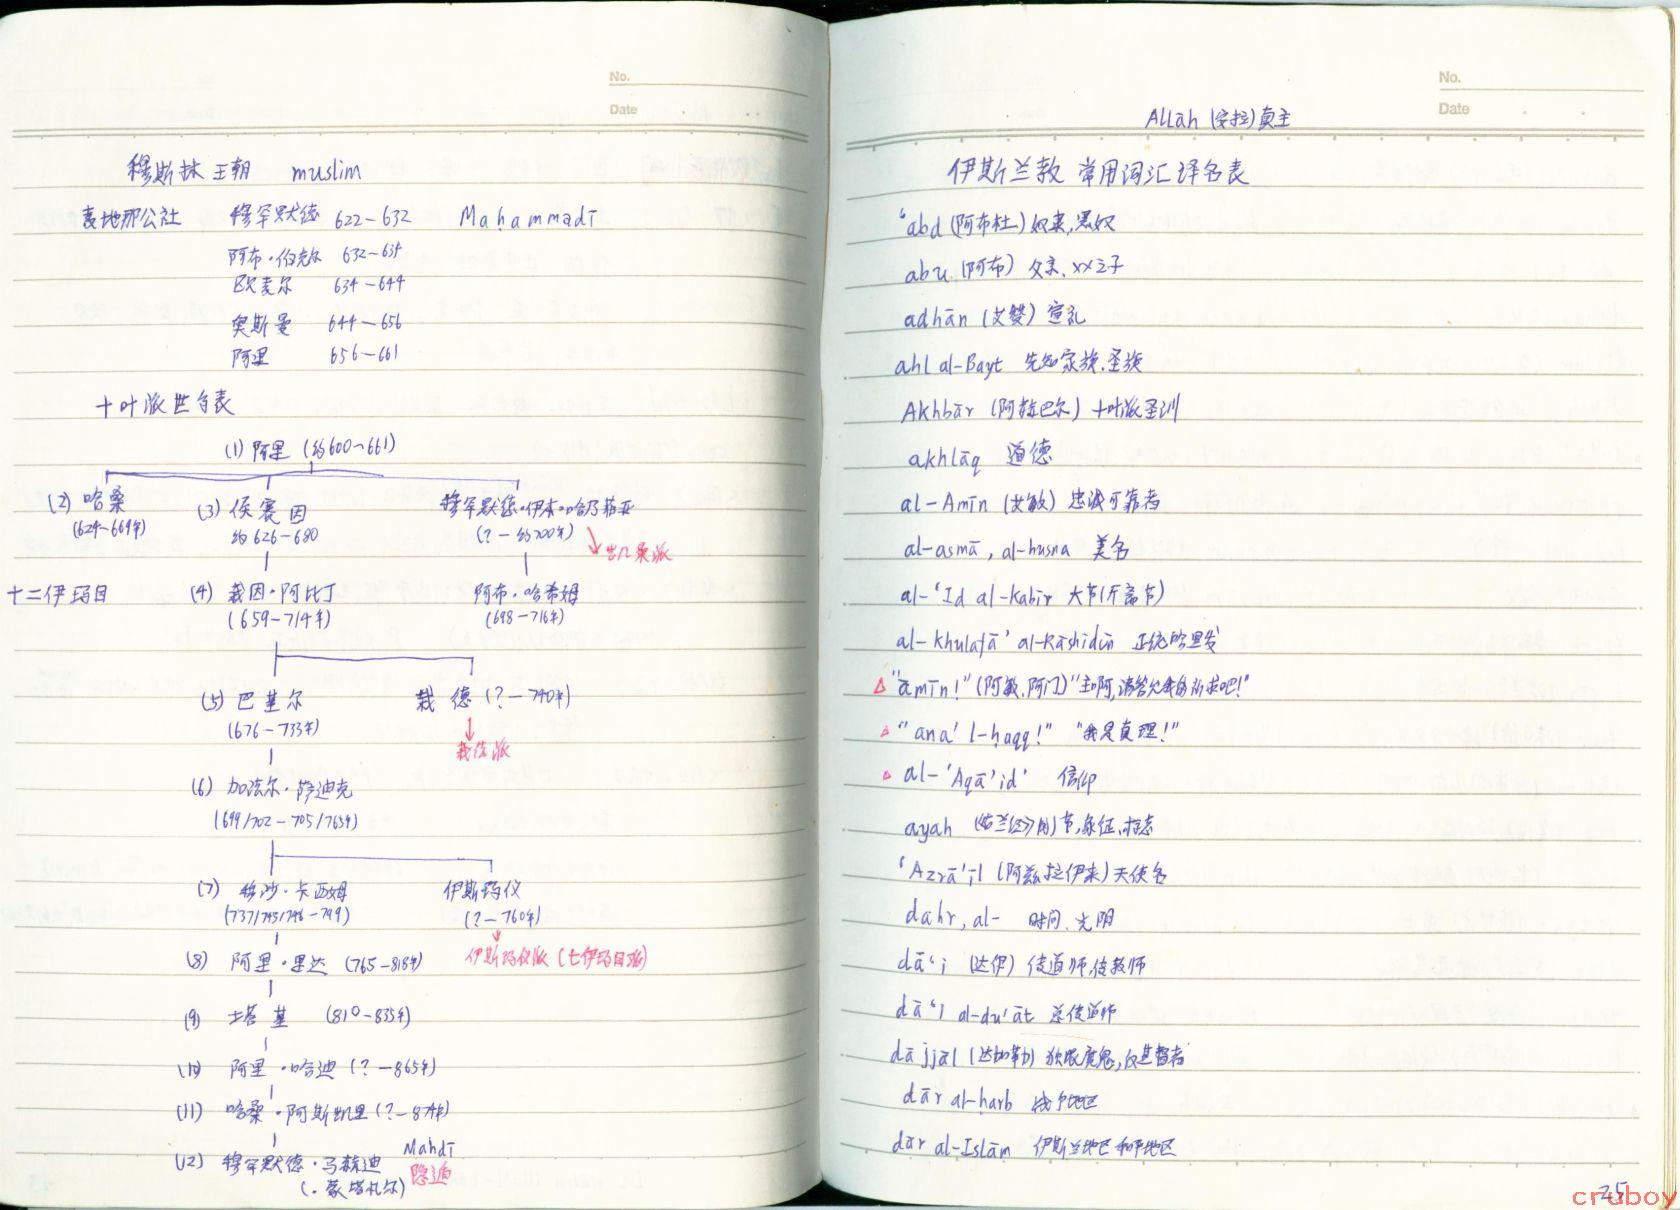 No.
Date
穆斯林王朝 muslim
麦地那公社 穆罕默德 622-632 Mahammadī
阿布·伯克尔 632-634
欧麦尔 634-644
奥斯曼 644-656
阿里 656-661
十叶派世系表
(1) 阿里 (约600-661)
(2) 哈桑 (3) 侯赛因 穆罕默德·伊本·哈乃菲亚
(624-669年) 约626-680 (?-约700年)
凯桑派
十二伊玛目 (4) 栽因·阿比丁 阿布·哈希姆
(659-714年) (698-716年)
(5) 巴基尔 栽德 (?-740年)
(676-733年)
栽德派
(6) 加法尔·萨迪克
(699/702-705/765年)
(7) 穆沙·卡西姆 伊斯玛仪
(737/745/746-799) (?-760年)
伊斯玛仪派 (七伊玛目派)
(8) 阿里·里达 (765-818年)
(9) 塔基 (810-835年)
(10) 阿里·哈迪 (?-865年)
(11) 哈桑·阿斯凯里 (?-874年)
(12) 穆罕默德·马赫迪 Mahdī
(·蒙塔扎尔) 隐遁
No.
Date
Allāh (安拉) 真主
伊斯兰教 常用词汇译名表
‘abd (阿布杜) 奴隶,黑奴
abu (阿布) 父亲、××之子
adhān (艾赞) 宣礼
ahl al-Bayt 先知家族.圣族
Akhbār (阿赫巴尔) 十叶派圣训
akhlāq 道德
al-Amīn (艾敏) 忠诚可靠者
al-asmā, al-husna 美名
al-‘Id al-kabīr 大节(开斋节)
al-khulafā’ al-Rāshidūn 正统哈里发
"āmīn!" (阿敏.阿门) "主啊,请答允我的祈求吧!"
"ana’l-ḥaqq!" "我是真理!"
al-‘Aqā’id’ 信仰
ayah (《古兰经》的)节,象征.标志
‘Azrā’īl (阿兹拉伊来) 天使名
dahr, al- 时间、光阴
dā‘i (达伊) 传道师,传教师
dā‘ī al-du‘āt 总传道师
dajjāl (达加勒) 独眼魔鬼,反基督者
dār al-ḥarb 战争地区
dār al-Islām 伊斯兰地区 和平地区
25
cruboy